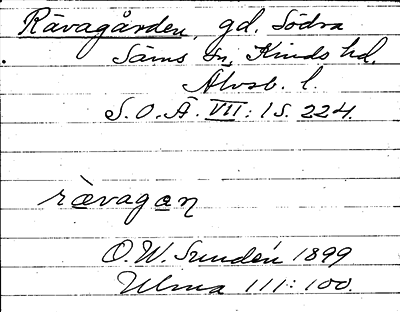 Rävagården, gd. Södra
Säms sn, Kinds hd.
Älvsb. l.
S.O.Ä. VII:1 S. 224.
rævagan
O.W. Sundén 1899
Ulma 111:100.